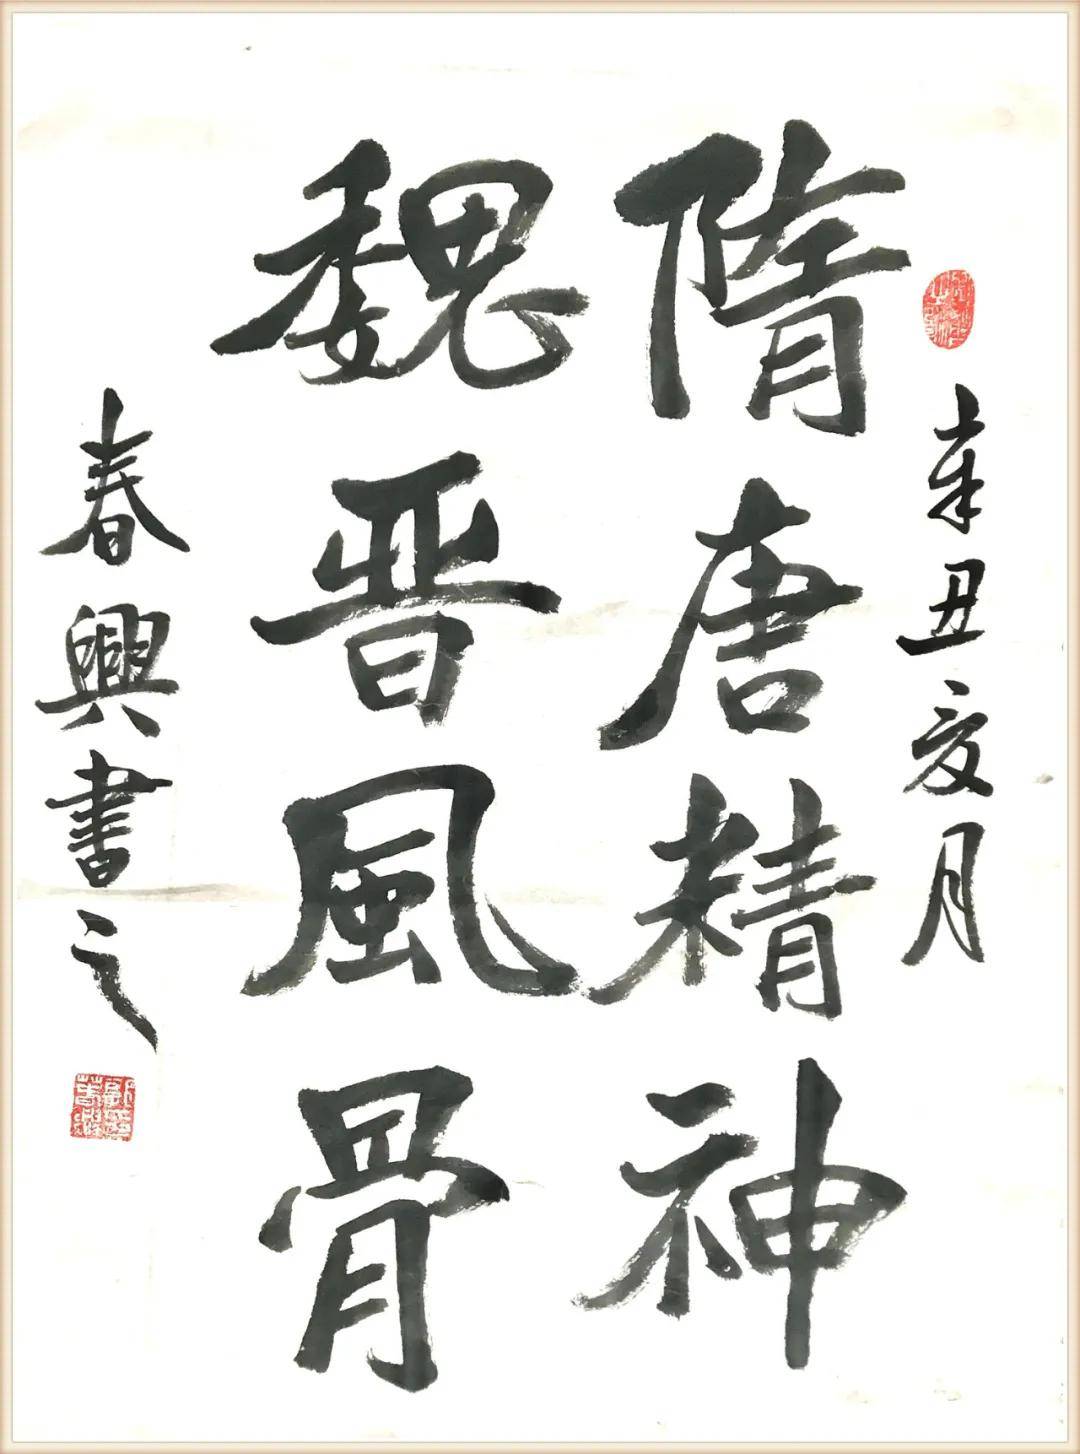 辛丑亥月
隋唐精神
魏晋風骨
春興書之